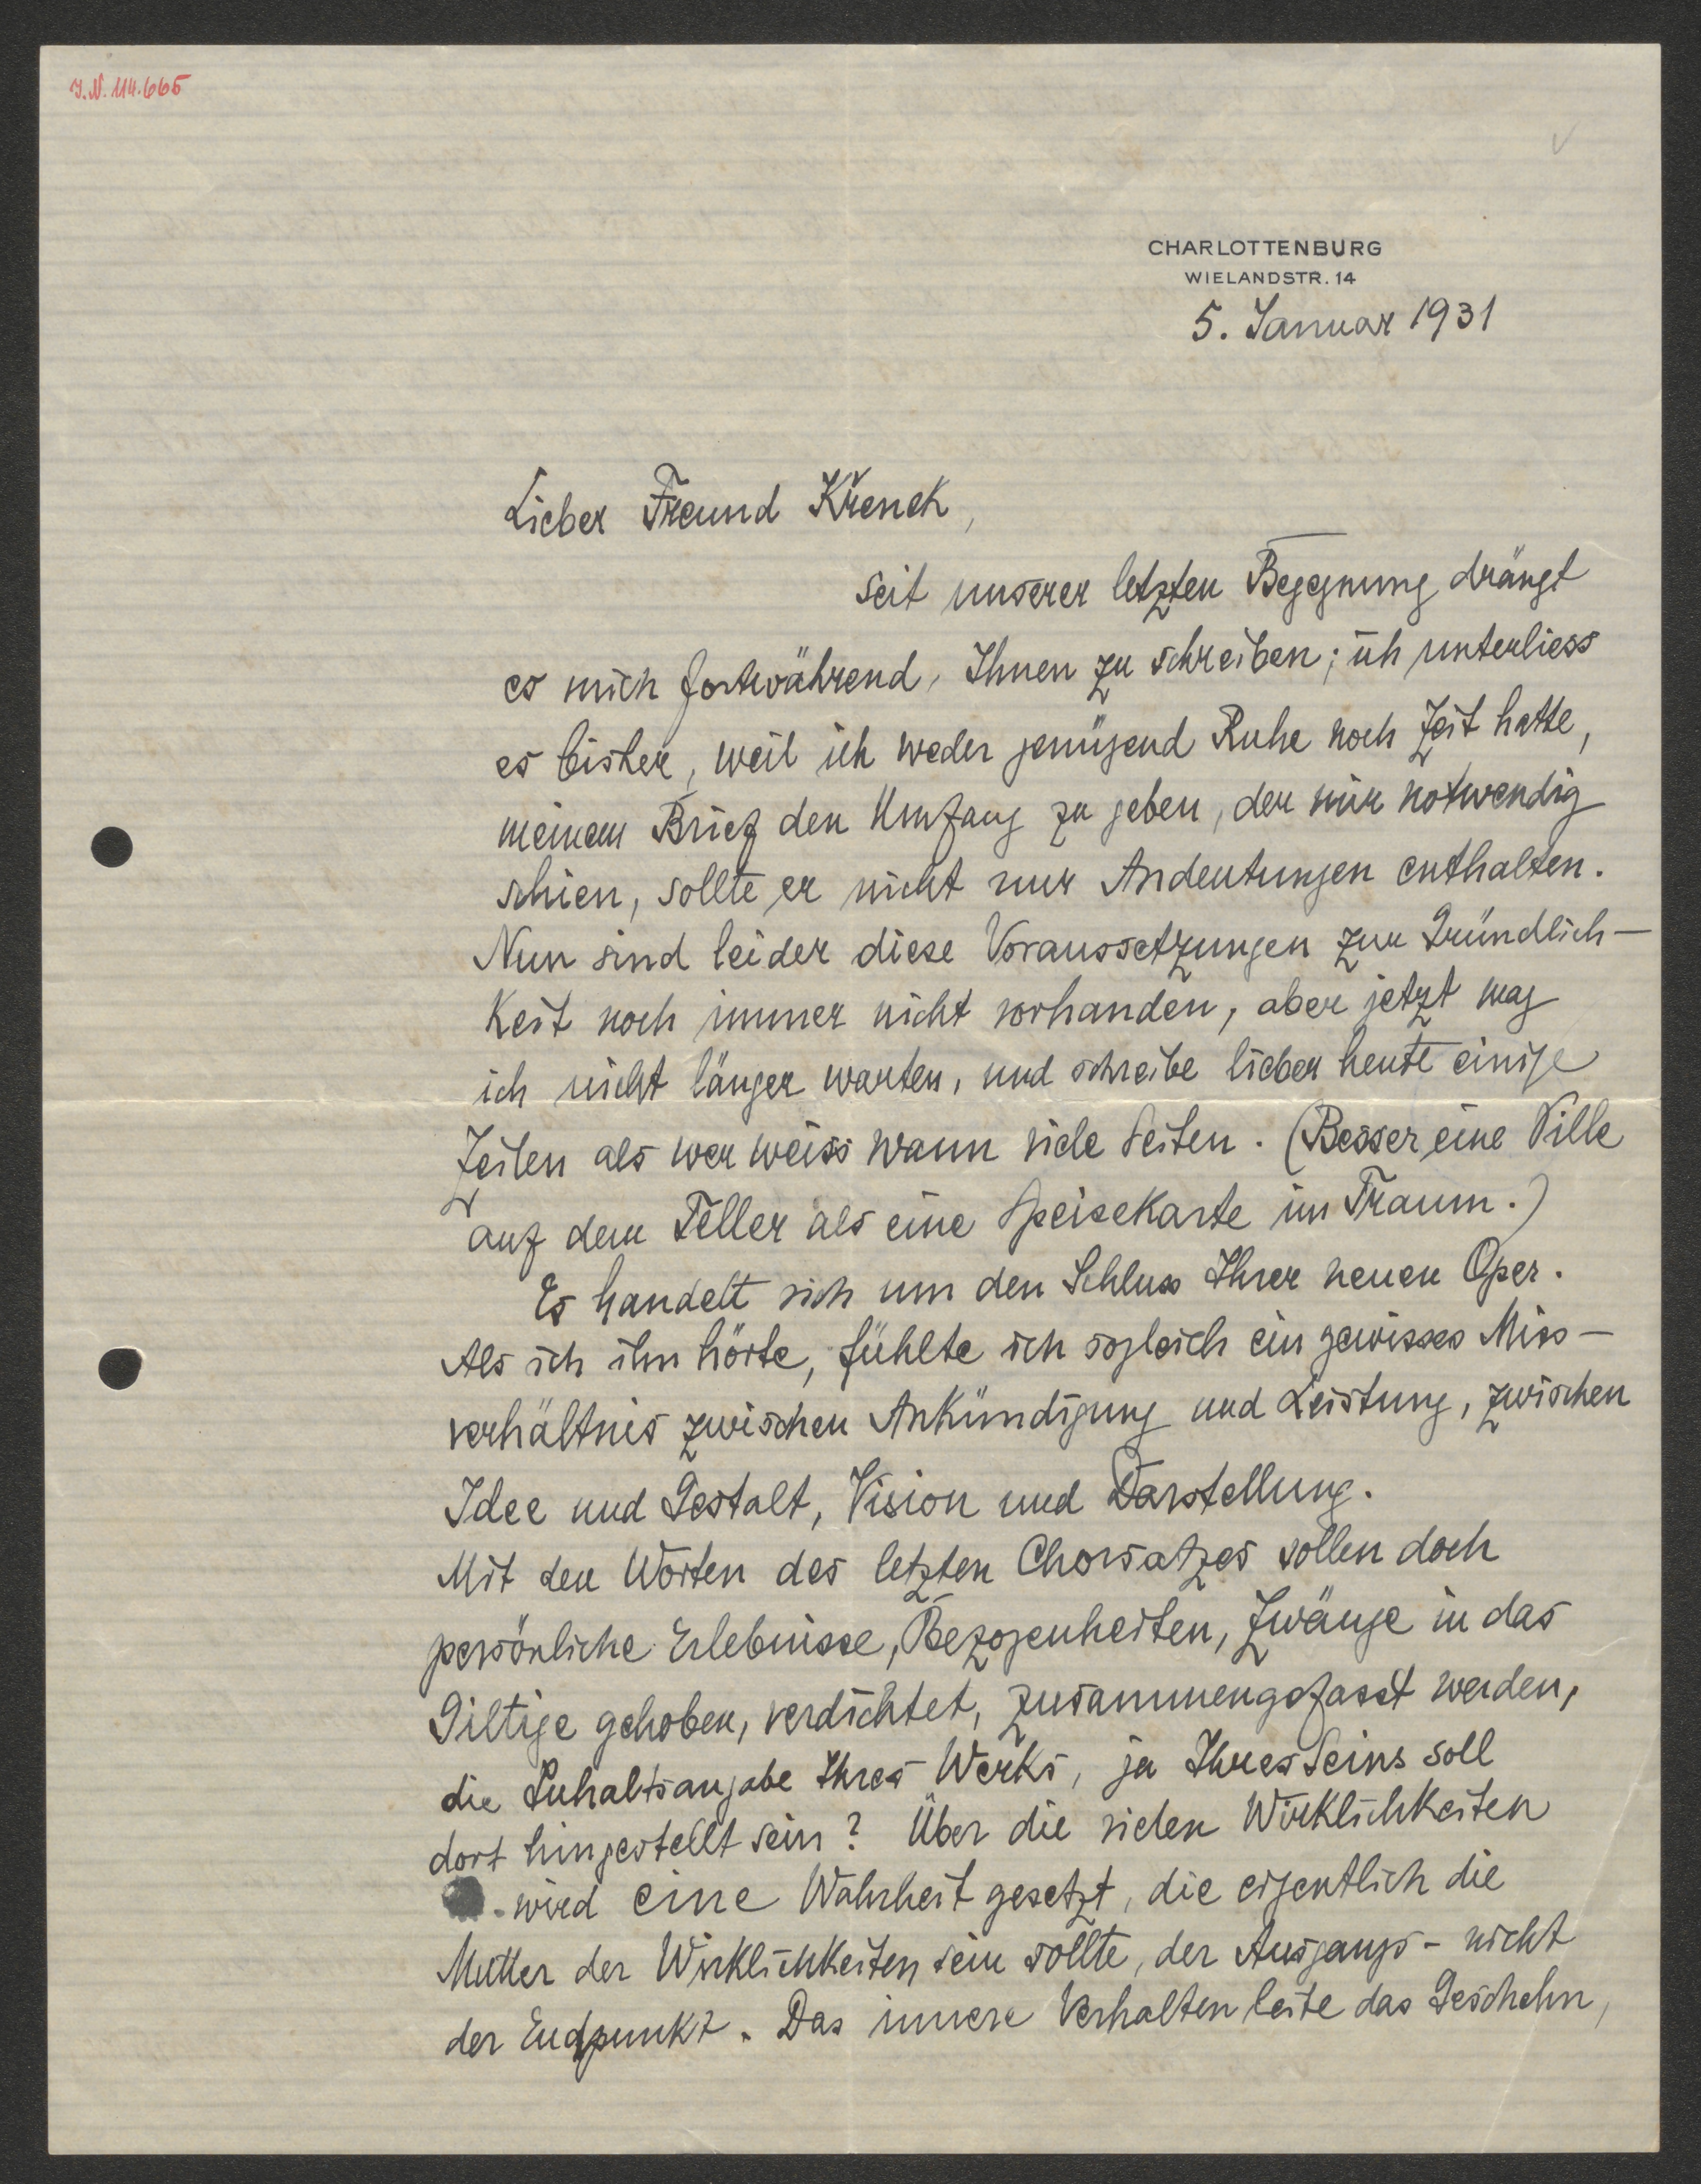 I.N. 114.665
CHARLOTTENBURG
WIELANDSTR. 14
5. Januar 1931
Lieber Freund Křenek,
seit unserer letzten Begegnung drängt
es mich fortwährend, Ihnen zu schreiben; ich unterliess
es bisher, weil ich weder genügend Ruhe noch Zeit hatte,
meinem Brief den Umfang zu geben, der mir notwendig
schien, sollte er nicht nur Andeutungen enthalten.
Nun sind leider diese Voraussetzungen zur Gründlich-
keit noch immer nicht vorhanden, aber jetzt mag
ich nicht länger warten, und schreibe lieber heute einige
Zeilen als wer weiss wann viele Seiten. (Besser eine Pille
auf dem Teller als eine Speisekarte im Traum.)
Es handelt sich um den Schluss Ihrer neuen Oper.
Als ich ihn hörte, fühlte ich sogleich ein gewisses Miss-
verhältnis zwischen Ankündigung und Leistung, zwischen
Idee und Gestalt, Vision und Darstellung.
Mit den Worten des letzten Chorsatzes sollen doch
persönliche Erlebnisse, Bezogenheiten, Zwänge in das
Giltige gehoben, verdichtet, zusammengefasst werden,
die Inhaltsangabe Ihres Werks, ja Ihres Seins soll
dort hingestellt sein? Über die vielen Wirklichkeiten
wird eine Wahrheit gesetzt, die eigentlich die
Mutter der Wirklichkeiten sein sollte, der Ausgangs- nicht
der Endpunkt. Das innere Verhalten leite das Geschehn,